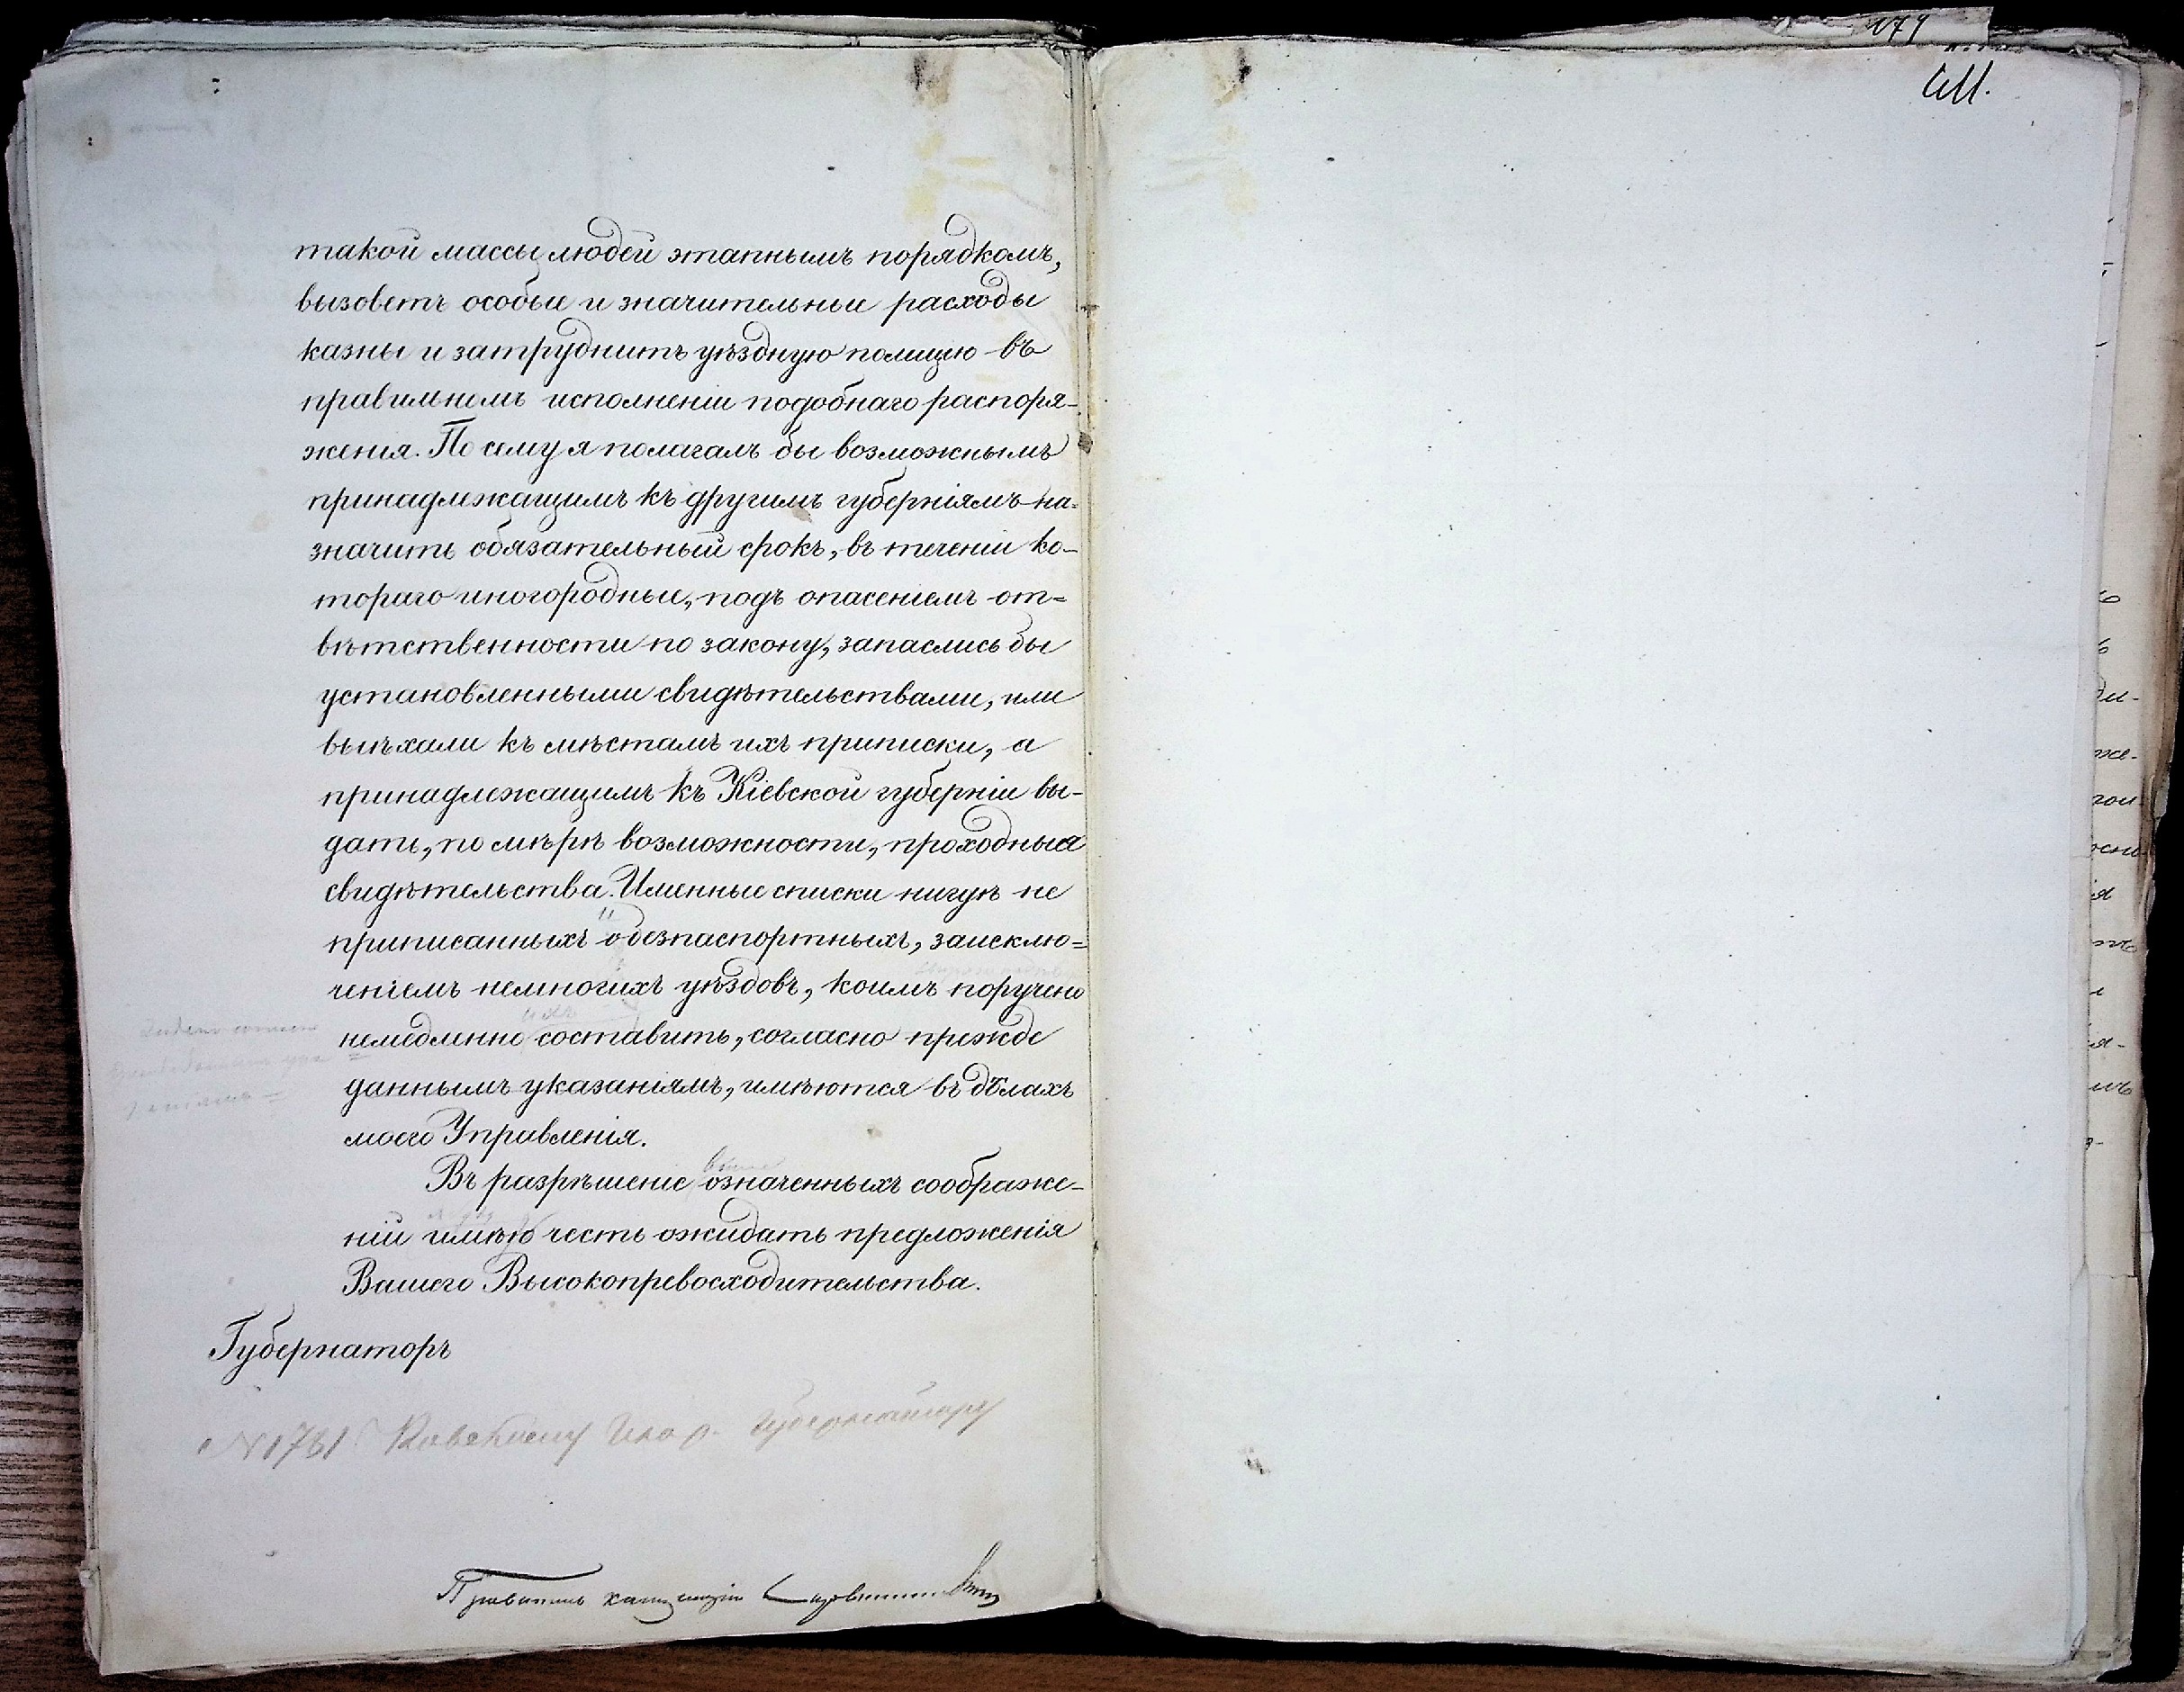 такой массы людей этапнымъ порядкомъ,
вызоветъ особые и значительные расходы
казны и затруднитъ уѣздную полицію въ
правильномъ исполненіи подобнаго распоря-
женія. По сему я полагалъ бы возможнымъ
принадлежащимъ къ другимъ губерніямъ на-
значить обязательный срокъ, въ теченіи ко-
тораго иногородные, подъ опасеніемъ от-
вѣтственности по закону, запаслись бы
установленными свидѣтельствами, или
выѣхали къ мѣстамъ ихъ приписки, а
принадлежащимъ къ Кіевской губерніи вы-
дать, по мѣрѣ возможности, проходныя
свидѣтельства. Именные списки нигдѣ не
приписанныхъ и безпаспортныхъ, за исклю-
ченіемъ немногихъ уѣздовъ, коимъ поручено
немедленно составить, согласно прежде
даннымъ указаніямъ, имѣются въ дѣлахъ
моего Управленія.
Въ разрѣшеніе означенныхъ соображе-
ній имѣю честь ожидать предложенія
Вашего Высокопревосходительства.
Губернаторъ
Губернатору
Правитель канцеляріи